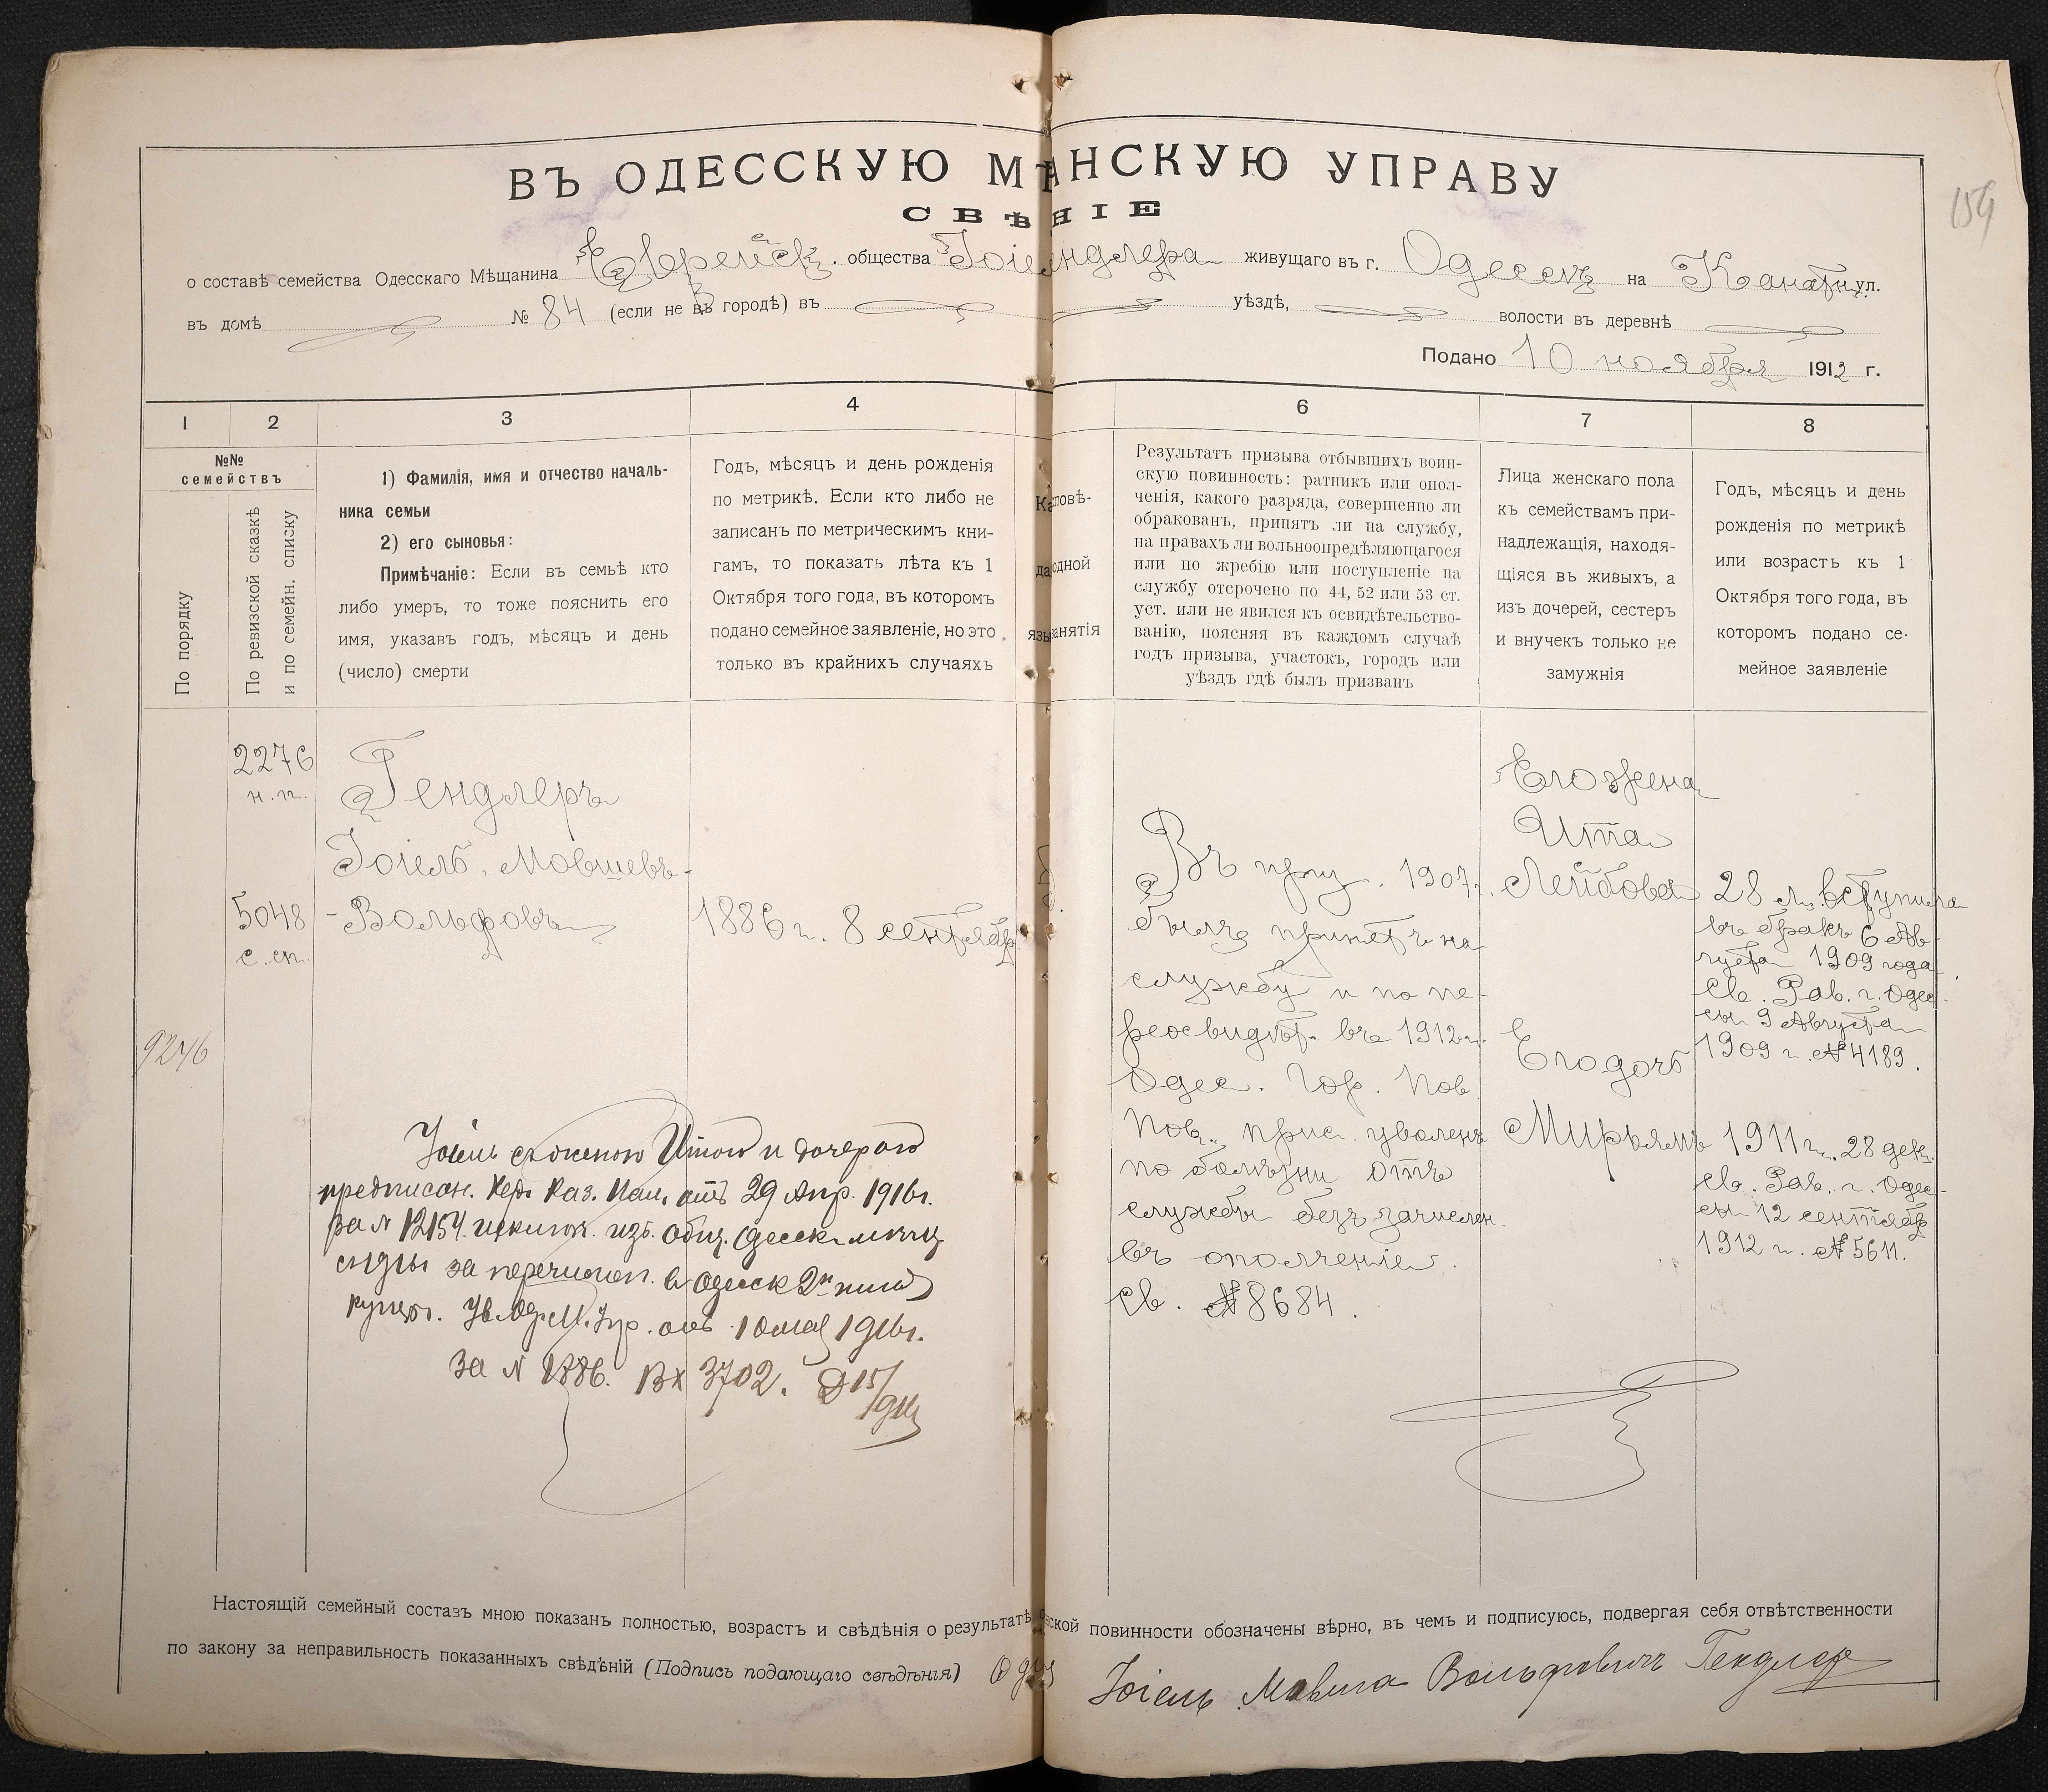 159
ВЪ ОДЕССКУЮ МѢ НСКУЮ УПРАВУ
СВѢ НІЕ
о составѣ семейства Одесскаго Мѣщанина Еврейск. общества Іоіе ндлера живущаго въ г. Одессѣ на Канатн. ул.
въ домѣ № 84 (если не въ городѣ) въ уѣздѣ, волости въ деревнѣ
Подано 10 ноября 1912 г.
1 2 3 4 6 7 8
№№ семействъ
По порядку
По ревизской сказкѣ и по семейн. списку
1) Фамилія, имя и отчество началь-
ника семьи
2) его сыновья:
Примѣчаніе: Если въ семьѣ кто
либо умеръ, то тоже пояснить его
имя, указавъ годъ, мѣсяцъ и день
(число) смерти
Годъ, мѣсяцъ и день рожденія
по метрикѣ. Если кто либо не
записанъ по метрическимъ кни-
гамъ, то показать лѣта къ 1
Октября того года, въ которомъ
подано семейное заявленіе, но это
только въ крайнихъ случаяхъ
К повѣ-
да одной
язы занятія
Результатъ призыва отбывшихъ воин-
скую повинность: ратникъ или опол-
ченія, какого разряда, совершенно ли
обракованъ, принятъ ли на службу,
на правахъ ли вольноопредѣляющагося
или по жребію или поступленіе на
службу отсрочено по 44, 52 или 53 ст.
уст. или не явился къ освидѣтельство-
ванію, поясняя въ каждомъ случаѣ
годъ призыва, участокъ, городъ или
уѣздъ гдѣ былъ призванъ
Лица женскаго пола
къ семействамъ при-
надлежащія, находя-
щіяся въ живыхъ, а
изъ дочерей, сестеръ
и внучекъ только не
замужнія
Годъ, мѣсяцъ и день
рожденія по метрикѣ
или возрастъ къ 1
Октября того года, въ
которомъ подано се-
мейное заявленіе
2276
н. п.
5048
с. сп.
9276
Гендлеръ
Іоіель, Мовшевъ-
-Вольфовъ
1886 г. 8 сентябр.
Въ приз. 1907 г.
былъ принятъ на
службу и по пе-
реосвидѣт. въ 1912 г.
Одес. Гор. Пов
Пов. прис. уволенъ
по болѣзни отъ
службы безъ зачислен.
въ ополченіе.
Св. № 8684.
Его жена
Ита
Лейбова
Его дочь
Мирьямъ
28 л. вступила
въ бракъ 6 Ав-
густа 1909 года.
Св. Рав. г. Одес-
сы 9 Августа
1909 г. № 4189.
1911 г. 28 дек.
Св. Рав. г. Одес-
сы 12 сентябр
1912 г. № 5611.
Іоіель съ женою Итою и дочерью
предписан. Хер. Каз. Пал. отъ 29 Апр. 1916 г.
за № 12154 исключ. изъ общ. Одесск. мѣщ.
за перечислен. в Одесск 2й гильд
купцы. Ув. Од. М. Упр. отъ 10 мая 1916 г.
за № 1886. Вх 3702. Д 15/
Настоящій семейный составъ мною показанъ полностью, возрастъ и свѣдѣнія о результатѣ ской повинности обозначены вѣрно, въ чемъ и подписуюсь, подвергая себя отвѣтственности
по закону за неправильность показанныхъ свѣдѣній (Подпись подающаго свѣдѣнія) Іоіель Мовша Вольфовичъ Гендлер